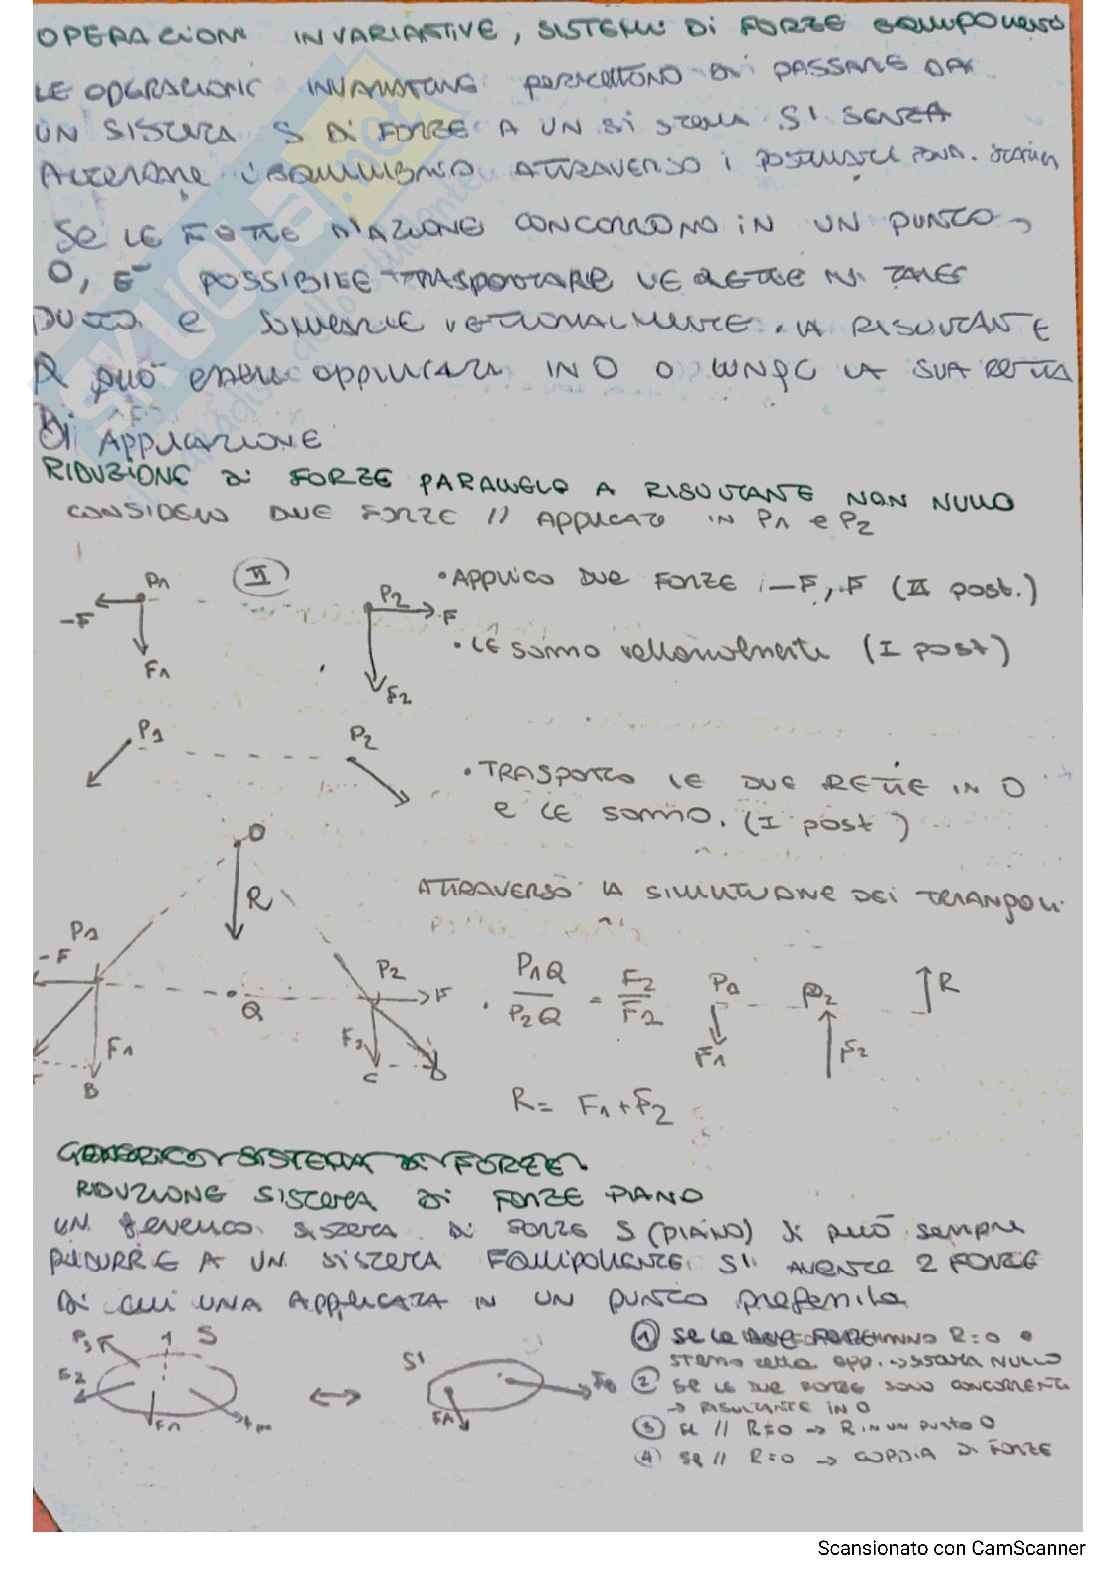 OPERAZIONI INVARIANTIVE, SISTEMI DI FORZE
LE OPERAZIONI INVARIANTIVE PERMETTONO DI PASSARE DA
UN SISTEMA S DI FORZE A UN SISTEMA S' SENZA
ALTERARE L'EQUILIBRIO ATTRAVERSO I POSTULATI
SE LE RETTE D'AZIONE CONCORRONO IN UN PUNTO
O, E' POSSIBILE TRASPORTARE LE RETTE IN TALE
PUNTO E SOMMARLE VETTORIALMENTE. LA RISULTANTE
R può essere applicata IN O O LUNGO LA SUA RETTA
DI APPLICAZIONE
RIDUZIONE DI FORZE PARALLELE A RISULTANTE NON NULLO
CONSIDERO DUE FORZE // APPLICATE IN P1 e P2
P1
II
P2
-F
F
F1
F2
• APPLICO DUE FORZE -F, F (II post.)
• LE sommo vettorialmente (I post)
P1
P2
• TRASPORTO LE DUE RETTE IN O
E LE SOMMO. (I post)
O
R
ATTRAVERSO LA SIMILITUDINE DEI TRIANGOLI
P1
-F
P2
F
Q
F1
B
F2
C
D
P1Q / P2Q = F2 / F2
P1
P2
R
F1
F2
R = F1 + F2
GENERICO SISTEMA DI FORZE
RIDUZIONE SISTEMA DI FORZE PIANO
UN generico SISTEMA DI FORZE S (PIANO) si può sempre
RIDURRE A UN SISTEMA EQUIPOLLENTE S' AVENTE 2 FORZE
DI cui UNA APPLICATA IN UN PUNTO preferito
S
F2
F1
Fm
S'
FA
① SE LE DUE FORZE HANNO R=0 e
stessa retta app. → SARA NULLO
② SE LE DUE FORZE SONO CONCORRENTI
→ RISULTANTE IN O
③ SE // R≠0 → R IN UN PUNTO O
④ SE // R=0 → COPPIA DI FORZE
SKUOLA.net
Scansionato con CamScanner